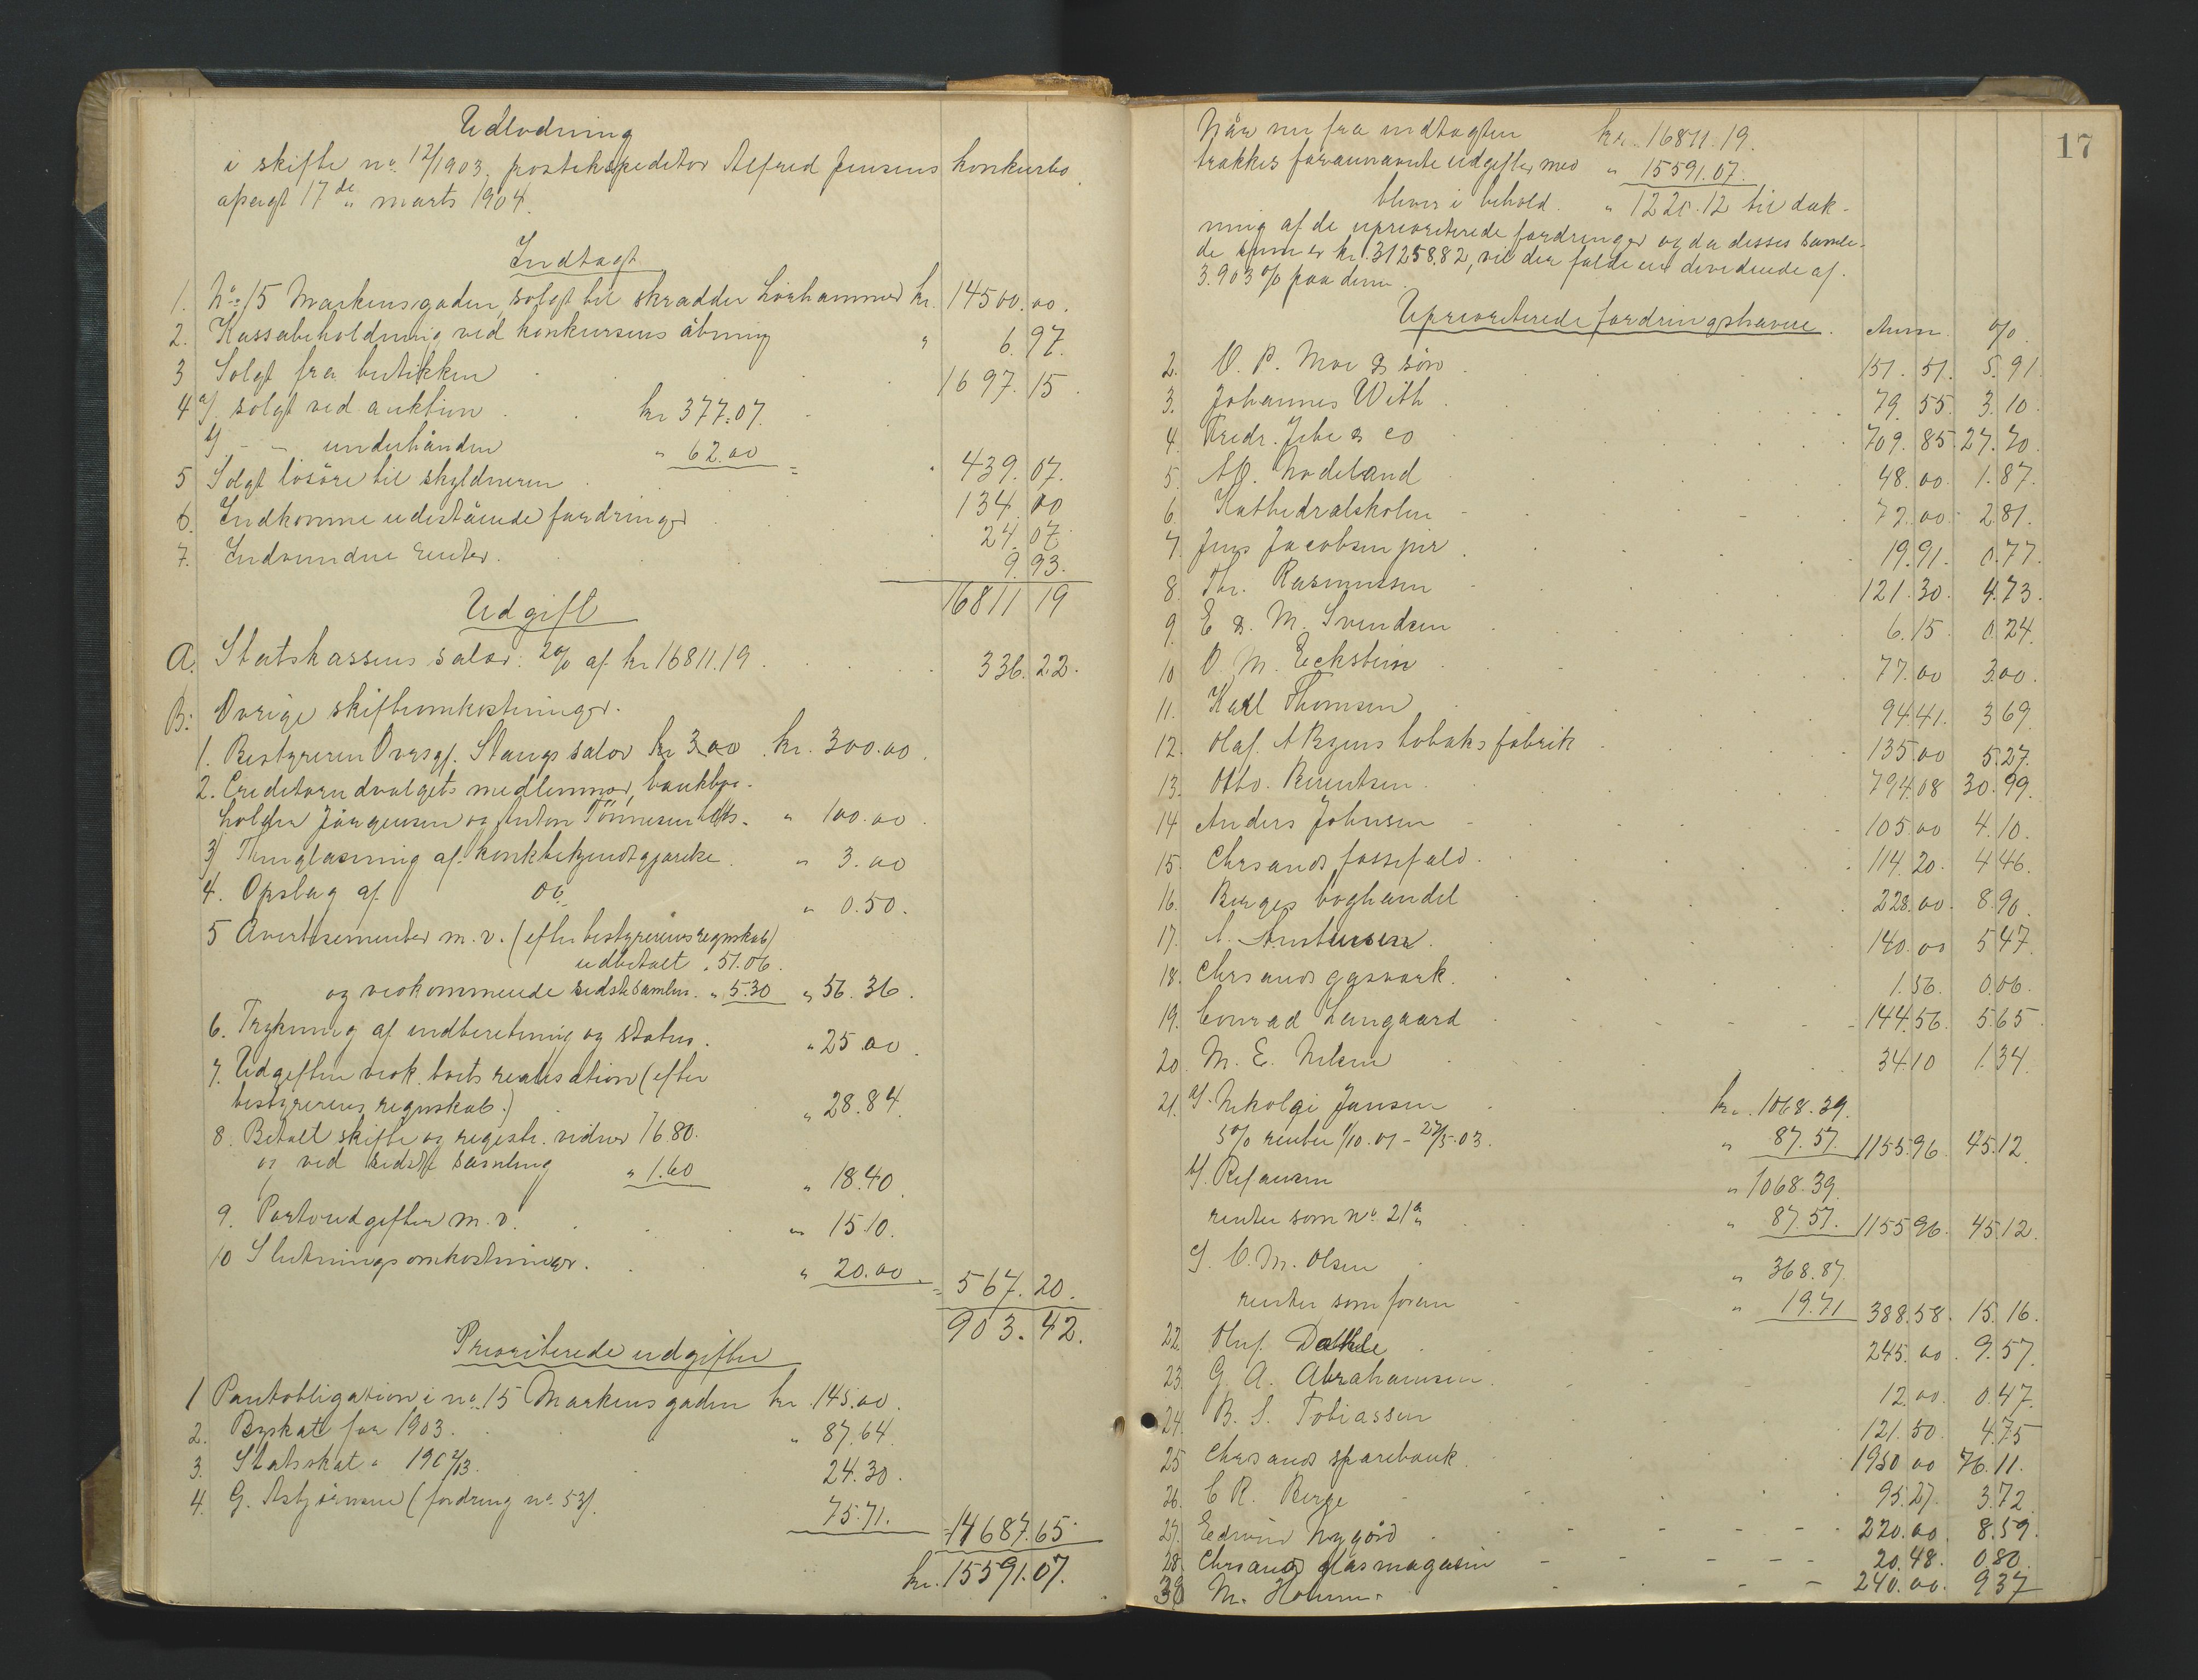 Udlodning
i skifte no. 12/1903, postekspeditør Alfred Jensens konkursbo
afsagt 17de marts 1904.
Indtægt
1. No. 15 Markensgaden, solgt til skrædder Lovhammer kr. 14500.00.
2. Kassabeholdning ved konkursens åbning " 6.97.
3 Solgt fra butikken 1697.15.
4 a/ solgt ved auktion kr 377.07.
b/ - - underhånden " 62.00 = 439.07.
5 Solgt løsøre til skyldneren 134.00
6. Indkomne udestående fordringer 24.07
7. Indvundne renter. 9.93.
16811 19
Udgift
A. Statskassens salær: 2% af kr 16811.19. 336.22.
B: Øvrige skifteomkostninger.
1. Bestyreren Oversgf. Stangs salær kr 300 kr. 300.00.
2. Creditorudvalgets medlemmer, bankbog-
holder Jörgensen og Anton Tönnesen " 100.00.
3/ Thinglæsning af konkbekjendtgjørelse. " 3.00
4. Opslag af do. " 0.50.
5 Avertisementer m.v. (efter bestyrerens regnskab)
udbetalt " 51.06.
og vedkommende sidste samling. " 5.30 " 56.36.
6. Trykning af indberetning og status. " 25.00.
7. Udgifter vedk. boets realisation (efter
bestyrerens regnskab.) " 28.84.
8. Betalt skifte og registr. vidner 16.80.
og ved sidste samling " 1.60 " 18.40.
9. Portoudgifter m.v. " 15.10.
10 Slutningsomkostninger. " 20.00 = 567.20.
903.42.
Prioriterede udgifter
1 Pantobligation i no. 15 Markensgaden kr. 145.00.
2. Byskat for 1903. " 87.64.
3. Statsskat " 1902/03. 24.30.
4. G. Asbjørnsen (fordring no. 53). 75.71. 14687.65.
kr. 15591.07.
17
Når nu fra indtægten kr. 16811.19.
trækkes forannævnte udgifter med " 15591.07.
bliver i behold. " 1220.12 til dæk-
ning af de uprioriterede fordringer og da disses samle-
de sum er kr. 31258.82, vil der falde en dividende af
3.903% paa dem.
Uprioriterede fordringshavere. Anm. %.
2. O. P. Moe & søn 151.51. 5.91
3. Johannes With. 79.55. 3.10.
4. Fredr. Jebe & co 709.85. 27.70.
5. Nodeland 48.00. 1.87.
6. Kathedralskolen 72.00. 2.81.
7. Jens Jacobsen jnr. 19.91. 0.77.
8. Thr. Rasmussen 121.30. 4.73.
9. E & M. Svendsen 6.15 0.24.
10 O. M. Eckstein 77.00 3.00.
11. Karl Thomsen 94.41. 3.69.
12. Olaf. A Ryens tobaksfabrik 135.00 5.27.
13. Otto. Berentsen. 794.08 30.99.
14 Anders Johnsen 105.00 4.10.
15. Chrsands fossefald. 114.20. 4.46.
16. Berges boghandel 228.00. 8.90.
17. A. 140.00 5.47.
18. Chrsands gasværk. 1.56. 0.06.
19. Conrad Langaard 144.56. 5.65.
20. M. E. Nilsen 34.10 1.34.
21. a/. Nikolai Jansen kr. 1068.39.
5% renter 1/10.01 - 27/5.03. " 87.57. 1155.96. 45.12.
b/. Ref. ansen " 1068.39.
renter som no. 21a " 87.57. 1155.96. 45.12.
c/. O. M. Olsen " 368.87.
renter som foran " 19.71 388.58. 15.16.
22. Oluf. Dahle 245.00. 9.57.
23. G. A. Abrahamsen. 12.00. 0.47.
24. B. S. Tobiassen 121.50. 4.75
25 Chrsands sparebank. 1950 00 76.11.
26. C R. Berge 95.27. 3.72.
27. Edvin Nygård 220.00. 8.59.
28. Chrsands glasmagasin 20.48. 0.80.
30 M. Homme. 240.00. 9.37